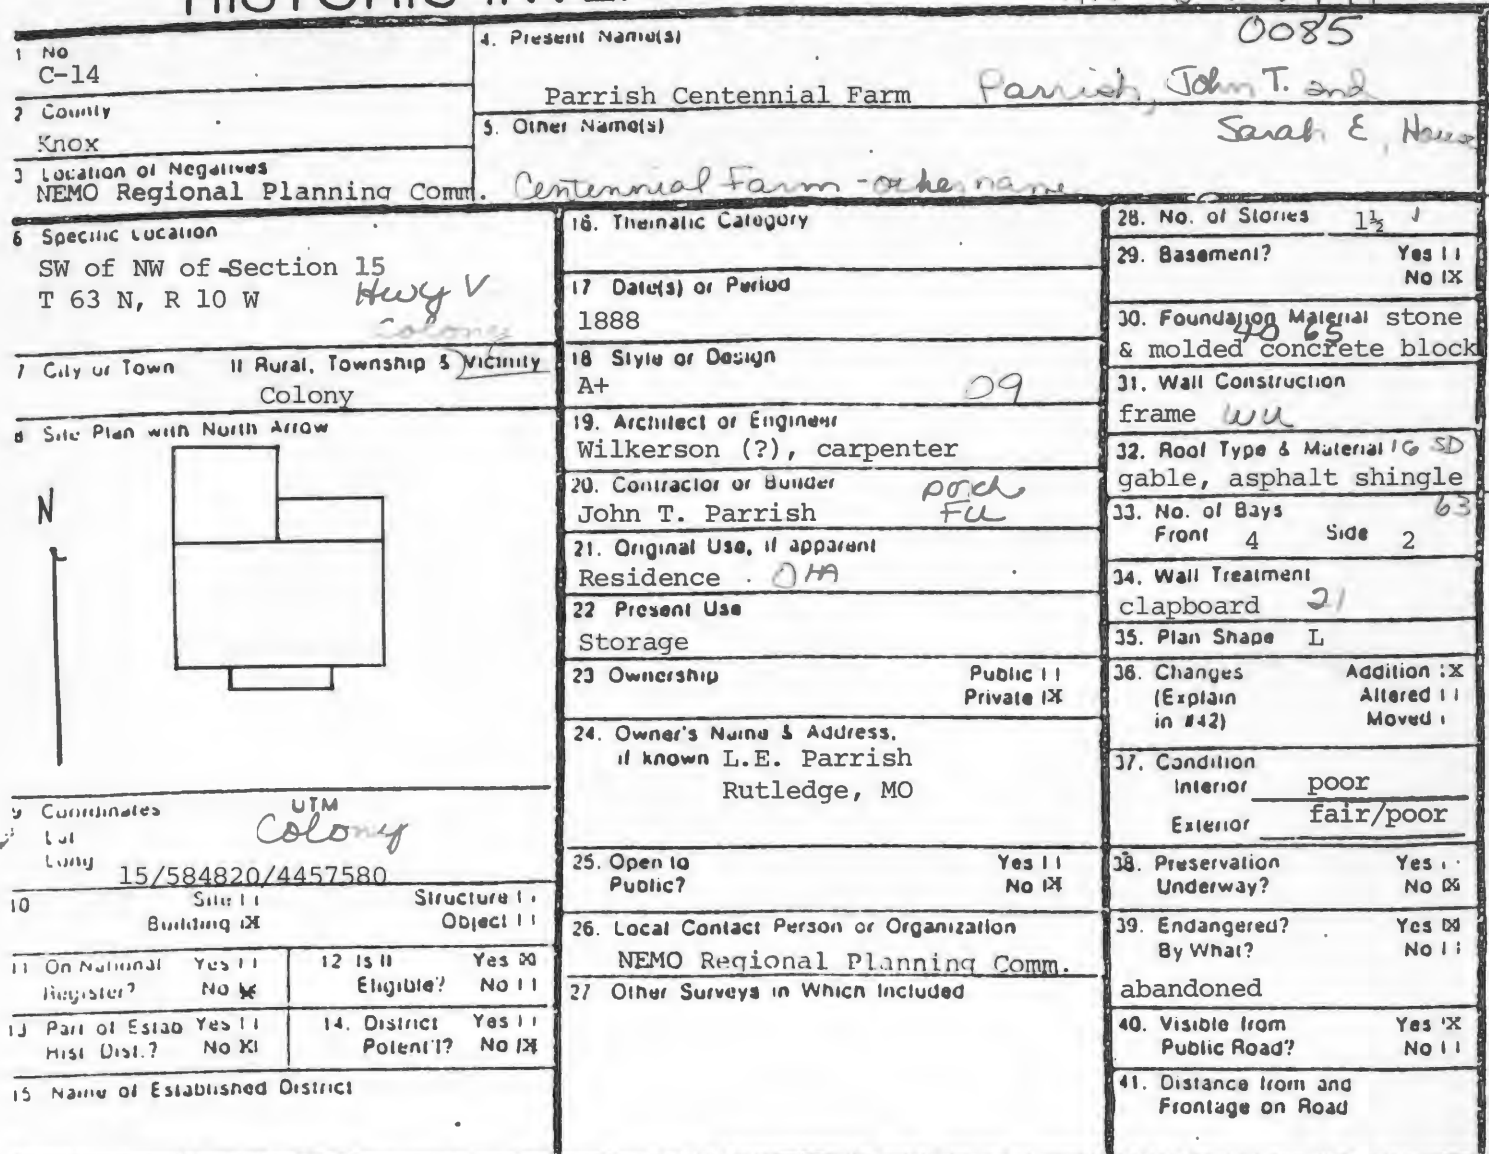 1 No
C-14
2 County
Knox
3 Location of Negatives
NEMO Regional Planning Comm.
4. Present Name(s)
0085
Parrish Centennial Farm Parrish, John T. and
Sarah E, House
5. Other Name(s)
Centennial Farm - other name
6 Specific Location
SW of NW of Section 15
T 63 N, R 10 W Hwy V
Colony
7 City or Town If Rural, Township & Vicinity
Colony
8 Site Plan with North Arrow
N
9 Coordinates UTM
Lat Colony
Long
15/584820/4457580
10 Site [ ] Structure [ ]
Building [X] Object [ ]
11 On National Yes [ ]
Register? No [X]
12 Is It Yes [X]
Eligible? No [ ]
13 Part of Estab Yes [ ]
Hist Dist.? No [X]
14. District Yes [ ]
Potent'l? No [X]
15 Name of Established District
16. Thematic Category
17 Date(s) or Period
1888
18 Style or Design
A+ 09
19. Architect or Engineer
Wilkerson (?), carpenter
20. Contractor or Builder porch
John T. Parrish FU
21. Original Use, if apparent
Residence OHA
22 Present Use
Storage
23 Ownership Public [ ]
Private [X]
24. Owner's Name & Address,
if known L.E. Parrish
Rutledge, MO
25. Open to Yes [ ]
Public? No [X]
26. Local Contact Person or Organization
NEMO Regional Planning Comm.
27 Other Surveys in Which Included
28. No. of Stories 1½
29. Basement? Yes [ ]
No [X]
30. Foundation Material stone
40 65
& molded concrete block
31. Wall Construction
frame WU
32. Roof Type & Material 1G SD
gable, asphalt shingle
63
33. No. of Bays
Front 4 Side 2
34. Wall Treatment
clapboard 21
35. Plan Shape L
36. Changes Addition [X]
(Explain Altered [ ]
in #42) Moved [ ]
37. Condition
Interior poor
Exterior fair/poor
38. Preservation Yes [ ]
Underway? No [X]
39. Endangered? Yes [X]
By What? No [ ]
abandoned
40. Visible from Yes [X]
Public Road? No [ ]
41. Distance from and
Frontage on Road